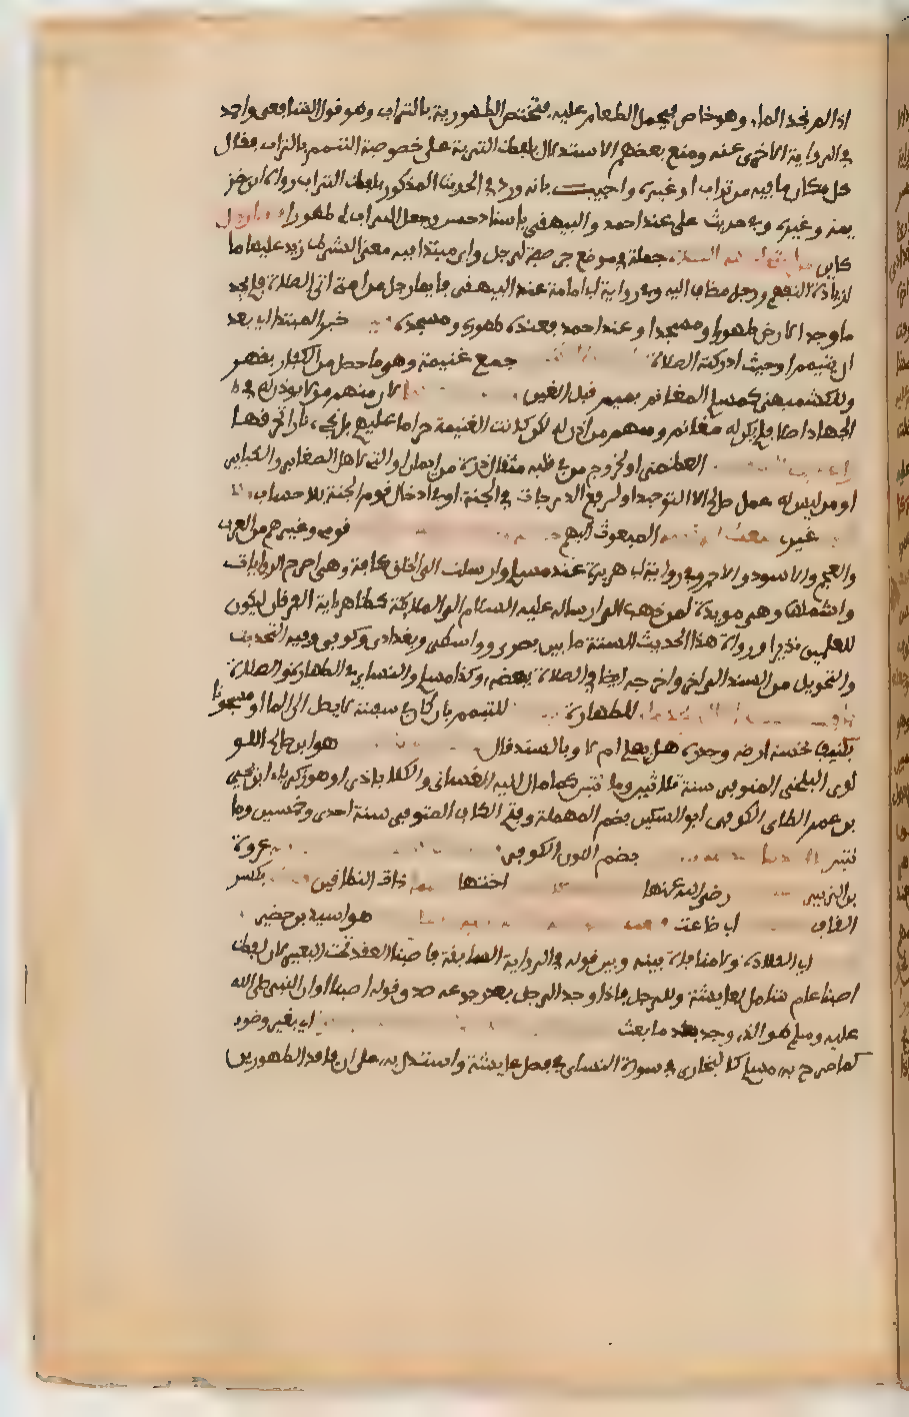 اذا لم نجد الماء وهو خاص فيحمل العام عليه فتختص الطهورية بالتراب وهو قول الشافعي واحمد
في الرواية الاخرى عنه ومنع بعضهم الاستدلال بلفظ التربة على خصوصية التيمم بالتراب فقال
كل مكان ما فيه من تراب او غيره واجيب بانه ورد في الحديث المذكور بلفظ التراب رواه ابن خز
يمة وغيره وفي حديث علي عند احمد والبيهقي باسناد حسن وجعل التراب لي طهورا
كاين جملة في موضع جر صفة لرجل واي مبتدا فيه معنى الشرط زيد عليها ما
لزيادة التعميم ورجل مضاف اليه وفي رواية ابي امامة عند البيهقي فايما رجل من امتي اتى الصلاة فلم يجد
ما وجد الارض طهورا ومسجدا وعند احمد فعنده طهوره ومسجده خبر المبتدا اي بعد
ان يتيمم او حيث ادركته الصلاة جمع غنيمة وهو ما حصل من الكفار بقهر
وللكشميهني كمسلم المغانم بميم قبل الغين لان منهم من لا يوذن له في
الجهاد اصلا فلم يكن له مغانم ومنهم من اذن له لكن كانت الغنيمة حراما عليهم بل تجيء نار تحرقها
العظمى او لخروج من في قلبه مثقال ذرة من ايمان او التي لاهل الصغاير والكباير
او من ليس له عمل صالح الا التوحيد او لرفع الدرجات في الجنة او في ادخال قوم الجنة بلا حساب
غيره المبعوث اليهم قومه وغيرهم من العرب
والعجم والاسود والاحمر وفي رواية ابي هريرة عند مسلم وارسلت الى الخلق كافة وهي اصرح الروايات
واشملها وهي مويدة لمن ذهب الى ارساله عليه السلام الى الملائكة كظاهر اية الفرقان ليكون
للعالمين نذيرا ورواة هذا الحديث الستة ما بين بصري وواسطي وبغدادي وكوفي وفيه التحديث
والتحويل من السند الى اخر واخرجه ايضا في الصلاة ببعضه وكذا مسلم والنساي في الطهارة والصلاة
للطهارة للتيمم بان كان في سفينة لا يصل الى الما او مسجونا
بكنيف نجسة ارضه وجدره هل يصلي ام لا وبالسند قال هو ابن صالح اللو
لوي البلخي المتوفى سنة ثلاثين وما تين كما مال اليه الغساني والكلاباذي او هو زكرياء ابن يحيى
بن عمر الطاي الكوفي ابو السكين بضم المهملة وفتح الكاف المتوفى سنة احدى وخمسين وما
تتين بضم النون الكوفي عروة
بن الزبير رضي الله عنها اختها ذات النطاقين بكسر
القاف اي ضاعت هو اسيد بن حضير
اي القلادة ولا منافاة بينه وبين قوله في الرواية السابقة فاصبنا العقد تحت البعير لان لفظ
اصبنا عام شامل لعايشة وللرجل فاذا وجد الرجل بعد رجوعه صدق قوله اصبنا او ان النبي صلى الله
عليه وسلم هو الذي وجده بعد ما بعث اي بغير وضوء
كما صرح به مسلم كالبخاري في سورة النساء في فضل عايشة واستدل به على ان فاقد الطهورين